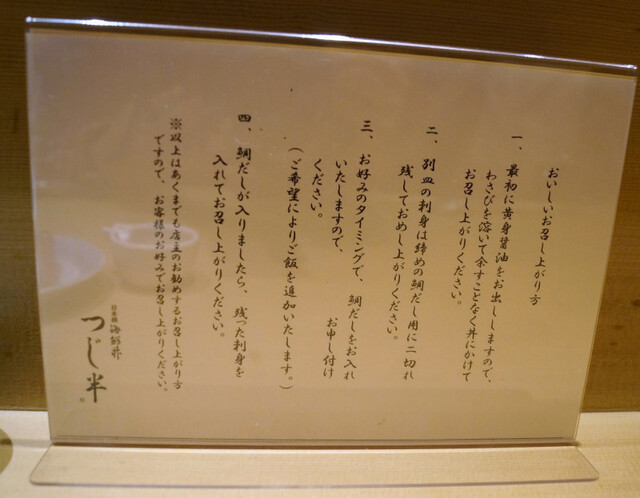 おいしいお召し上がり方
一、最初に黄身醤油をお出ししますので、
わさびを溶いて余すことなく丼にかけて
お召し上がりください。
二、別皿の刺身は締めの鯛だし用に二切れ
残しておめし上がりください。
三、お好みのタイミングで、鯛だしをお入れ
いたしますので、お申し付け
ください。
(ご希望によりご飯を追加いたします。)
四、鯛だしが入りましたら、残った刺身を
入れてお召し上がりください。
※以上はあくまでも店主のお勧めするお召し上がり方
ですので、お客様のお好みでお召し上がりください。
日本橋 海鮮丼
つじ半